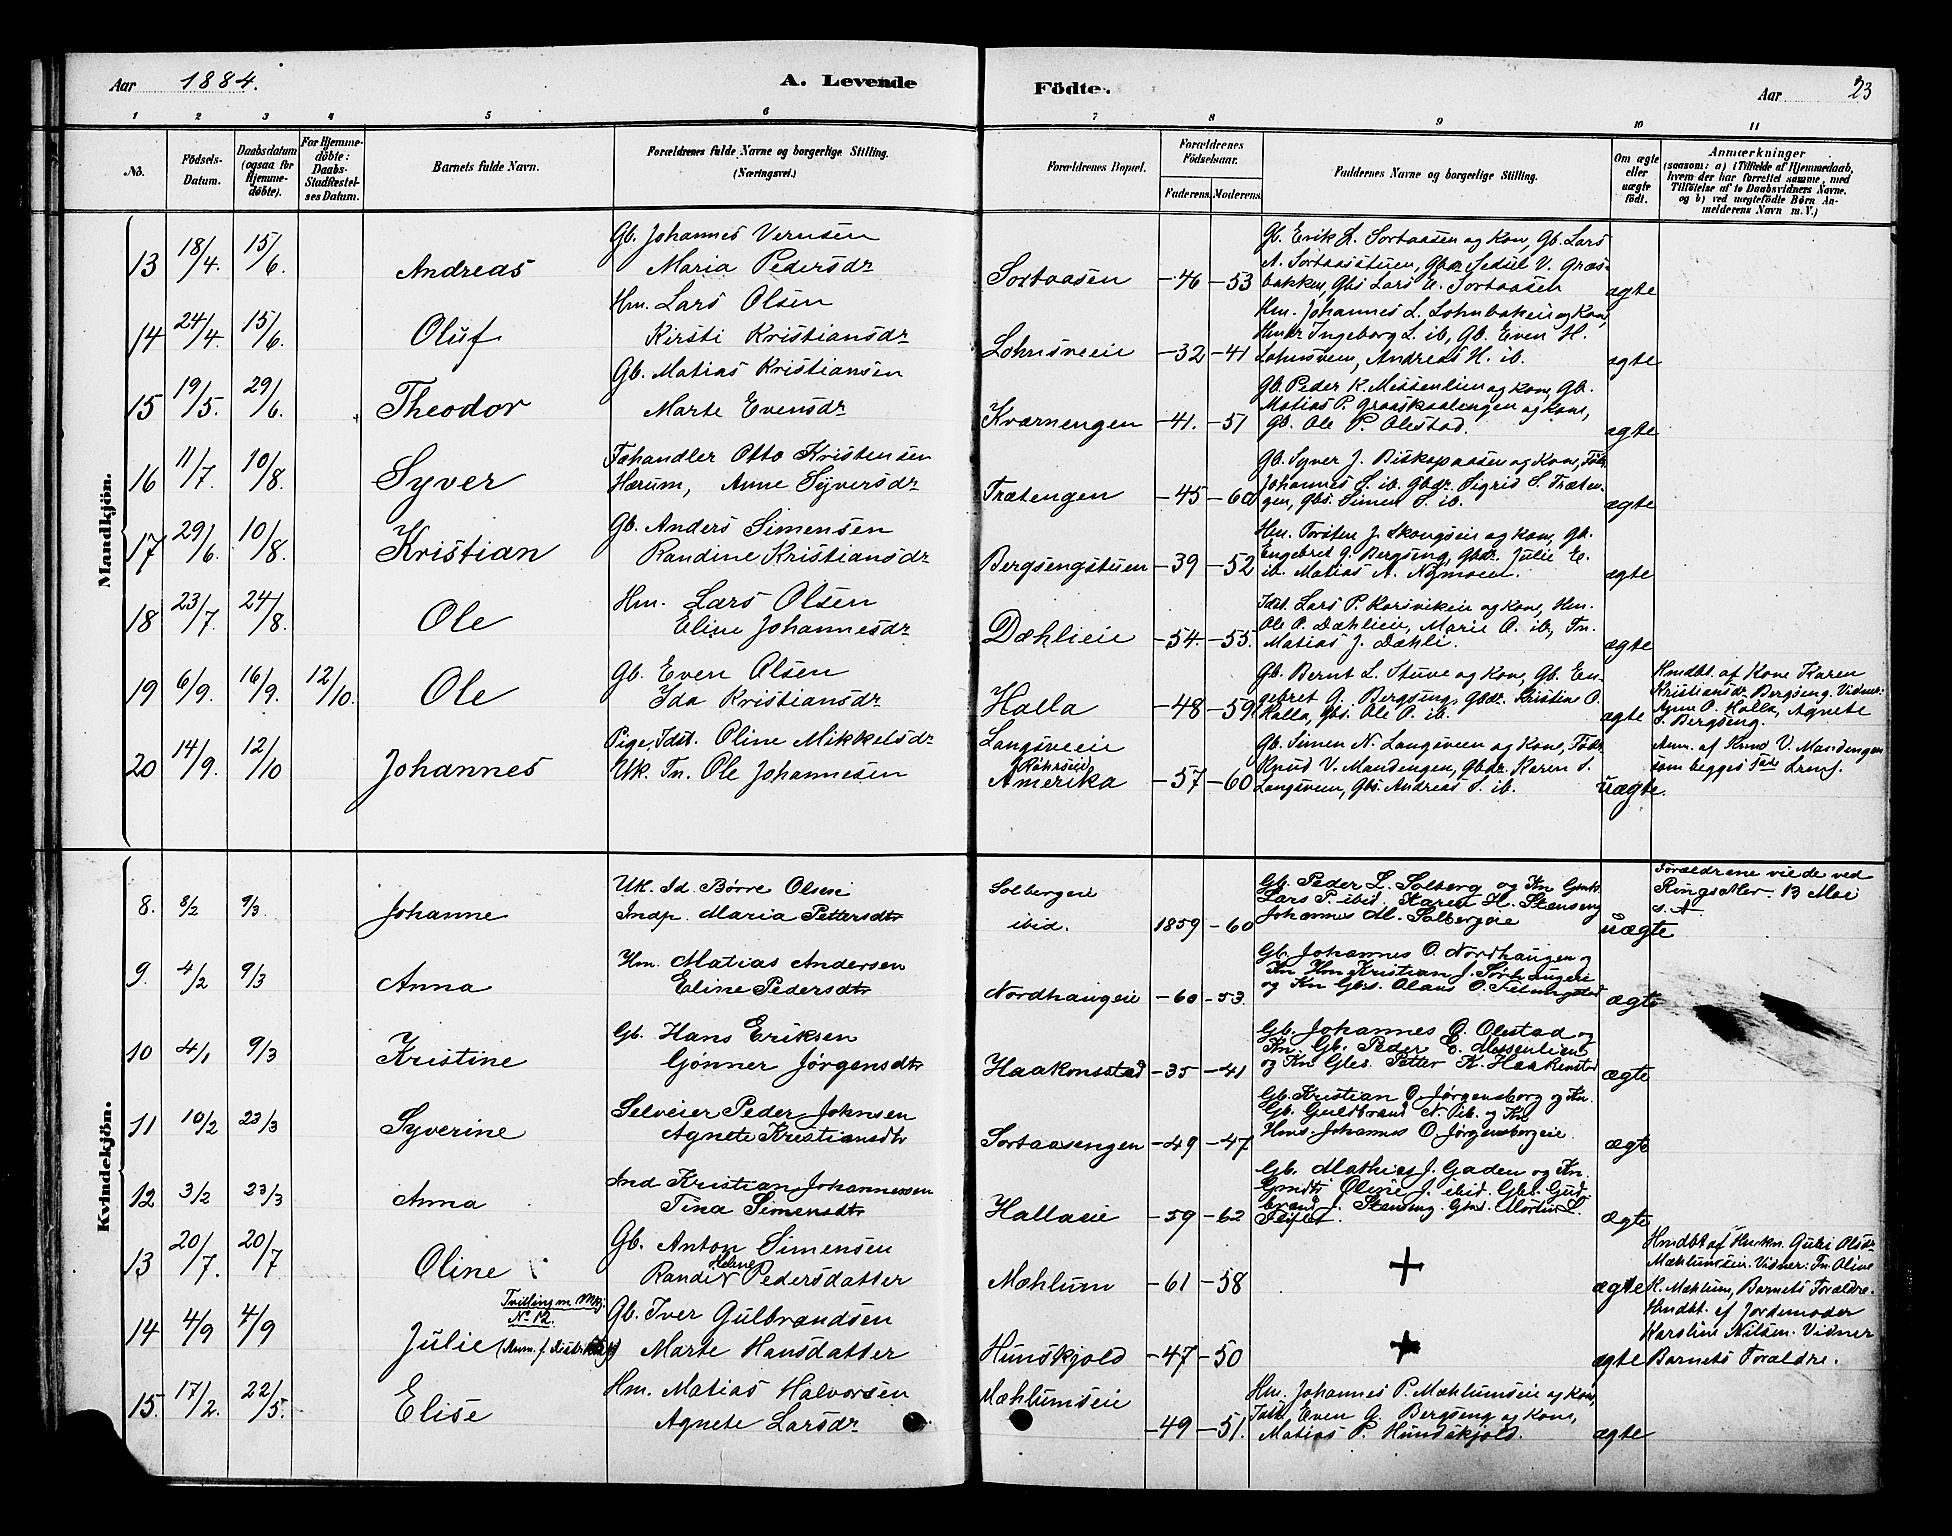 Aar 1884. A. Levende Födte. Aar 23
1 2 3 4 5 6 7 8 9 10 11
No. Födsels-Datum. Daabsdatum (ogsaa for Hjemmedöbte). For Hjemmedöbte: Daabs-Stadfæstelses Datum. Barnets fulde Navn. Forældrenes fulde Navne og borgerlige Stilling. (Næringsvei.) Forældrenes Bopæl. Forældrenes Födselsaar. Faderens. Moderens. Faddernes Navne og borgerlige Stilling. Om ægte eller uægte födt. Anmærkninger (saasom: a) i Tilfælde af Hjemmedaab, hvem der har forrettet samme, med Tilföielse af to Daabsvidners Navne, og b) ved uægtefödte Börn Anmelderens Navn m. V.)
Mandkjön.
13 18/4. 15/6. Andreas Gb. Johannes Vernsen
Maria Pedersdr Sortaasen -46 -53 ægte
Gb. Erik L. Sortaasen og Kone, Gb. Lars
A. Sortaasstuen, Gbdr Sedsil V. Græs-
bakken, Gbs Lars E. Sortaasen
14 24/4. 15/6. Oluf Hm. Lars Olsen
Kirsti Kristiansdr Lohnsveie -32 -41 ægte
Hm. Johannes L. Lohnbakeie og Kone,
Hmdr Ingeborg L. ib, Gb. Even H.
Lohnsveen, Andreas H. ib.
15 19/5. 29/6. Theodor Gb. Matias Kristiansen
Marte Evensdr Kvarnengen -41. -51 ægte
Gb. Peder K. Messenlien og Kone, Gb.
Matias P. Graaskaalengen og Kone,
Gb. Ole P. Olestad.
16 11/7. 10/8. Syver Fæhandler Otto Kristensen
Hærum, Anne Syversdr Trætengen -45 -60 ægte
Gb. Syver J. Biskopaasen og Kone, Fdbr.
Johannes S. ib. Gbdr. Sigrid S. Træten-
gen, Gbs. Simen S. ib.
17 29/6. 10/8. Kristian Gb. Anders Simensen
Randine Kristiansdr Bergsengstuen -39 -52 ægte
Hm. Torsten J. Skougseie og Kone, Gb.
Engebret G. Bergseng, Gbdr. Julie E.
ib. Matias A. Nymoen.
18 23/7. 24/8. Ole Hm. Lars Olsen
Eline Johannesdr Dæhlieie -54. -55. ægte
Idst. Lars P. Korsvikeie og Kone, Hm.
Ole P. Dæhlieie, Marie O. ib, Tn.
Matias J. Dæhli.
19 6/9. 16/9. 12/10. Ole Gb. Even Olsen
Ida Kristiansdr Halla -48 -59 ægte
Gb. Bernt L. Stuve og Kone, Gb. En-
gebret G. Bergseng, Gbdr. Kristine O.
Halla, Gbs. Ole O. ib.
Hmdbt. af Kone Karen
Kristiansdr. Bergseng. Vidner:
Agne O. Halla, Agnete
S. Bergseng.
20 14/9. 12/10 Johannes Pige, Idst. Oline Mikkelsdr
Uk. Tn. Ole Johannesen Langsveie
Amerika -57 -60 uægte.
Gb. Simen N. Langsveen og Kone, Fddr.
Knud V. Mandengen, Gbdr. Karen S.
Langsveen, Gbs. Andreas S. ib.
Anm. af Knud V. Mandengen
som begges 1ste Lrmf.
Kvindekjön.
8. 8/2 9/3 Johanne Uk. Id. Børre Olsen
Indp. Maria Pettersdtr Solbergeie
ibid. 1859 -60 uægte
Gb. Peder L. Solberg og Kn Gmk
Lars P. ibid. Karen H. Stenseng
Johannes M. Solbergeie
Forældrene viede ved
Ringsaker 13 Mai
s. A
9. 4/2 9/3 Anna Hm. Matias Andersen
Eline Pedersdtr Nordhaugeie -60 -53. ægte
Gb. Johannes O. Nordhaugen og
Kn Hm Kristian J. Sørhaugeie
og Kn Gbs. Olaus O.
10 4/1 9/3 Kristine Gb. Hans Eriksen
Gjønner Jørgensdtr Haakonsstad -35 -41 ægte
Gb. Johannes O. Olestad og
Kn. Gb. Peder E. Messenlien
og Kn Gbs. Petter K. Haakenstad
11 10/2 23/3 Syverine Selveier Peder Johnsen
Agnete Kristiansdtr Sortaasengen -49 -47 ægte
Gb. Kristian O Jørgensborg og Kn.
Gb. Guldbrand N. ib. og Kn
Hms. Johannes O. Jørgensborgeie.
12 3/2 23/3 Anna Ind Kristian Johannessen
Tina Simensdtr Hallaeie -59 -62 ægte
Gb. Mathias J. Gaden og Kn.
Gmdtr Oline J. ibid. Gbs. Gud-
brand J. Stenseng. Gms. Morten L.
13 20/7. 20/7 Oline Gb. Anton Simensen
Helene
Randi Pedersdatter Mæhlum -61 -58 + ægte
Hmdbt af Huskn. Guri Olsdr
Mæhlumseie. Vidner: Tn. Oline
K. Mæhlum, Barnets Forældre.
14 4/9 4/9 Julie Tvilling m Mkj.
No 12. Gb. Iver Gulbrandsen
Marte Hansdatter Hunskjold -47 -50 + ægte
Hmdbt. af Jordemoder
Karoline Nilsen. Vidner
Barnets Forældre.
15. 17/2. 22/5. Elise Hm. Matias Halvorsen
Agnete Larsdr Mæhlumseie -49 -51. ægte
Hm. Johannes P. Mæhlumseie og Kone,
Idst. Even G. Bergseng og Kone,
Matias P. Hundskjold.